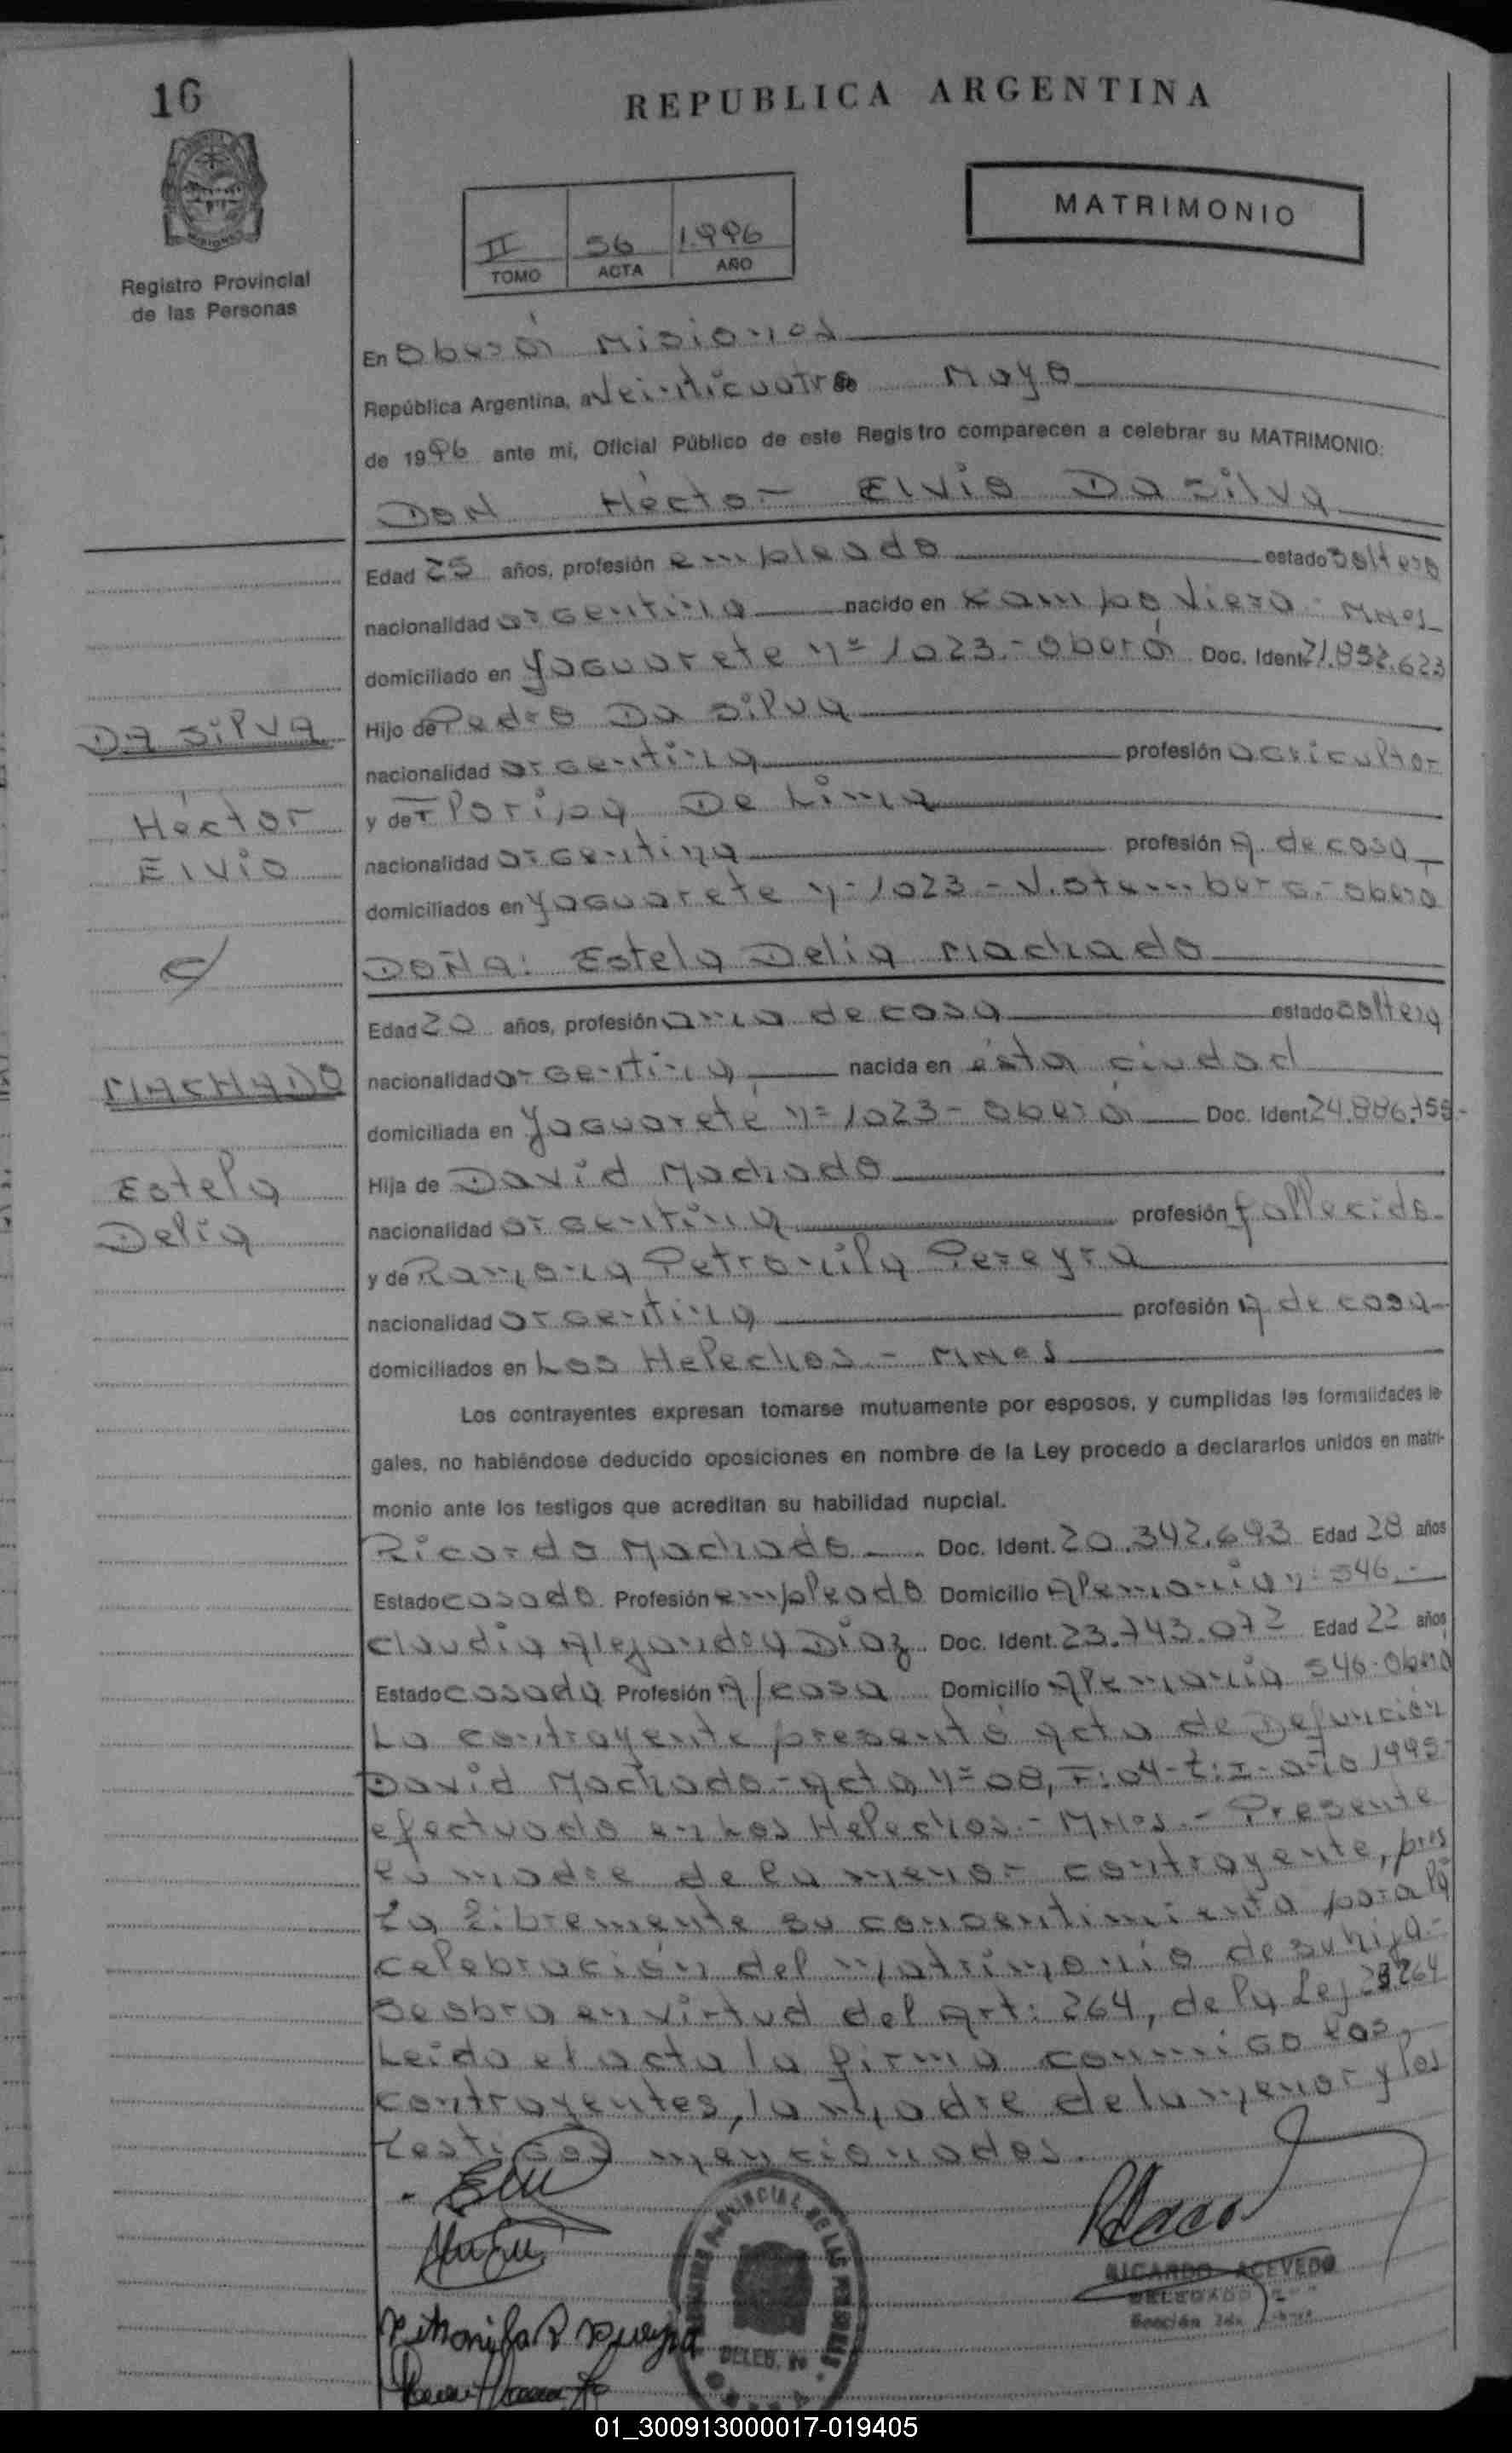 16
REPUBLICA ARGENTINA
MATRIMONIO
II 56 1996
TOMO ACTA AÑO
Registro Provincial
de las Personas
En Oberá Misiones
República Argentina, a Veinticuatro de Mayo
de 1996 ante mi, Oficial Público de este Registro comparecen a celebrar su MATRIMONIO:
DON Héctor Elvio Da Silva
Edad 25 años, profesión empleado estado soltero
nacionalidad argentina nacido en Campo Viera - Mnes
domiciliado en Yaguarete nº 1023.- Oberá Doc. Ident. 21.852.623
DA SILVA
Hijo de Pedro Da Silva
nacionalidad argentina profesión agricultor
Héctor
Elvio
y de Floripa De Lima
nacionalidad argentina profesión A. de casa
domiciliados en Yaguarete nº 1023 - V. Stemberg.- Oberá
c/
DOÑA: Estela Delia Machado
Edad 20 años, profesión ama de casa estado soltera
MACHADO
nacionalidad argentina nacida en ésta ciudad
domiciliada en Yaguareté nº 1023 - Oberá Doc. Ident. 24.886.755-
Estela
Delia
Hija de David Machado
nacionalidad argentina profesión fallecido-
y de Ramona Petronila Pereyra
nacionalidad argentina profesión A. de casa-
domiciliados en Los Helechos.- Mnes
Los contrayentes expresan tomarse mutuamente por esposos, y cumplidas las formalidades le-
gales, no habiéndose deducido oposiciones en nombre de la Ley procedo a declararlos unidos en matri-
monio ante los testigos que acreditan su habilidad nupcial.
Ricardo Machado Doc. Ident. 20.342.693 Edad 28 años
Estado casado Profesión empleado Domicilio Alemania nº 546.-
Claudia Alejandra Díaz Doc. Ident. 23.743.072 Edad 22 años
Estado casada Profesión A/casa Domicilio Alemania 546-Oberá
La contrayente presentó acta de Defunción
David Machado.- acta nº 08, F: 04- t: I- año 1995-
efectuado en Los Helechos.- Mnes.- Presente
la madre de la menor contrayente, pres
ta libremente su consentimiento para la
celebración del matrimonio de su hija.-
Se obra en virtud del Art: 264, de la Ley 23264
Leída el acta la firma conmigo los,
contrayentes, la madre de la menor y los
testigos mencionados.
RICARDO ACEVEDO
DELEGADO
Sección 2da.
PROVINCIAL DE LAS PERSONAS
DELEG.
01_300913000017-019405